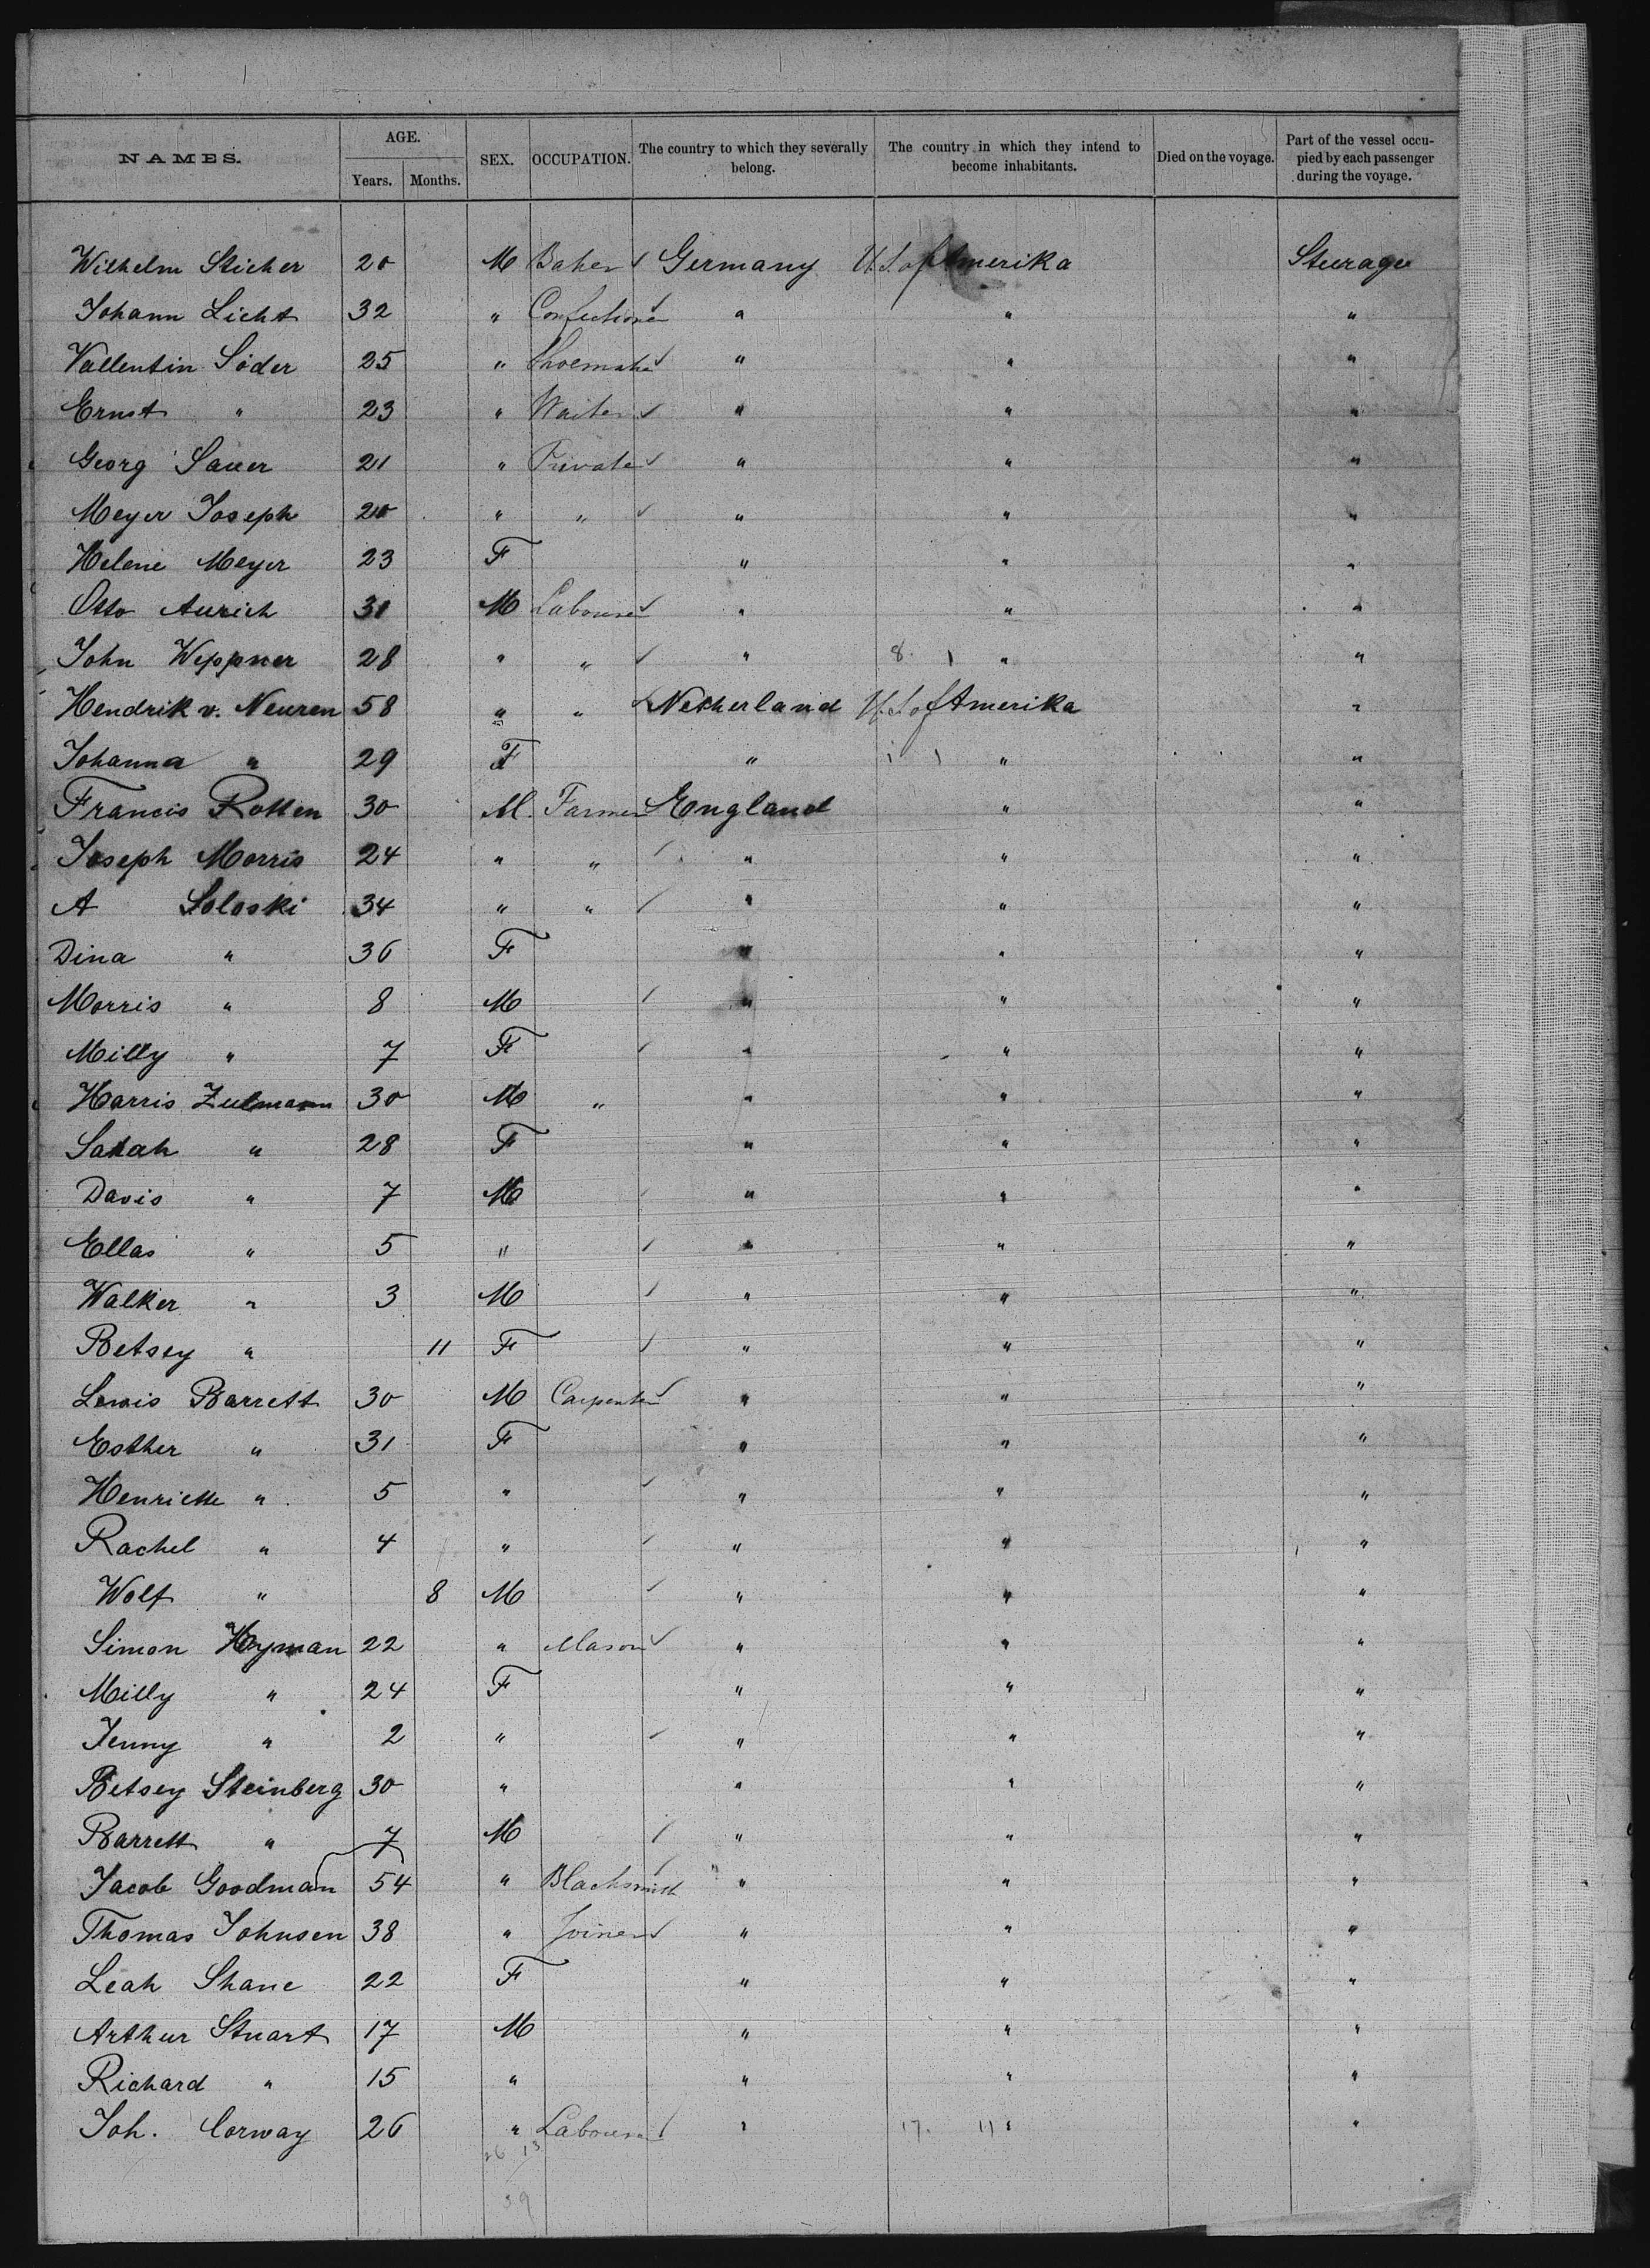 NAMES. AGE. Years. Months. SEX. OCCUPATION. The country to which they severally belong. The country in which they intend to become inhabitants. Died on the voyage. Part of the vessel occupied by each passenger during the voyage.
Wilhelm Sticher 20 M Baker Germany U.S. of Amerika Steerage
Johann Licht 32 " Confectioner " " "
Vallentin Söder 25 " Shoemaker " " "
Ernst " 23 " Waiter " " "
Georg Sauer 21 " Private " " "
Meyer Joseph 20 " " " " "
Helene Meyer 23 F " " "
Otto Aurich 31 M Labourer " " "
John Weppner 28 " " " 8. 1 " "
Hendrik v. Neuren 58 " " Netherland U.S. of Amerika "
Johanna " 29 F " 1 1 " "
Francis Rotten 30 M. Farmer England " "
Joseph Morris 24 " " " " "
A Soloski 34 " " " " "
Dina " 36 F " " "
Morris " 8 M " " "
Milly " 7 F " " "
Harris Zulmann 30 M " " " "
Sarah " 28 F " " "
Davis " 7 M " " "
Ellas " 5 " " " "
Walker " 3 M " " "
Betsey " 11 F " " "
Lewis Barrett 30 M Carpenter " " "
Esther " 31 F " " "
Henriette " 5 " " " "
Rachel " 4 " " " "
Wolf " 8 M " " "
Simon Hyman 22 " Mason " " "
Milly " 24 F " " "
Jenny " 2 " " " "
Betsey Steinberg 30 " " " "
Barrett " 7 M " " "
Jacob Goodman 54 " Blacksmith " " "
Thomas Johnsen 38 " Joiner " " "
Leah Shane 22 F " " "
Arthur Stuart 17 M " " "
Richard " 15 " " " "
Joh. Corway 26 " Labourer " 17. 11 " "
26 13
39